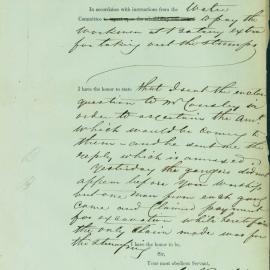 In accordance with instructions from the Water
Committee to pay the
workmen at Keating extra
for taking out the stumps
I have the honor to state that I sent the enclosed
question to Mr Conolly in
order to ascertain the Amt
which would be coming to
them - and he sent me the
reply which is annexed
Yesterday the gangers did not
appear before your worship
but one man from each gang
came and claimed payment
for excavation while heretofore
the only claim made was for
the stumping
I have the honor to be,
Sir,
Your most obedient Servant,